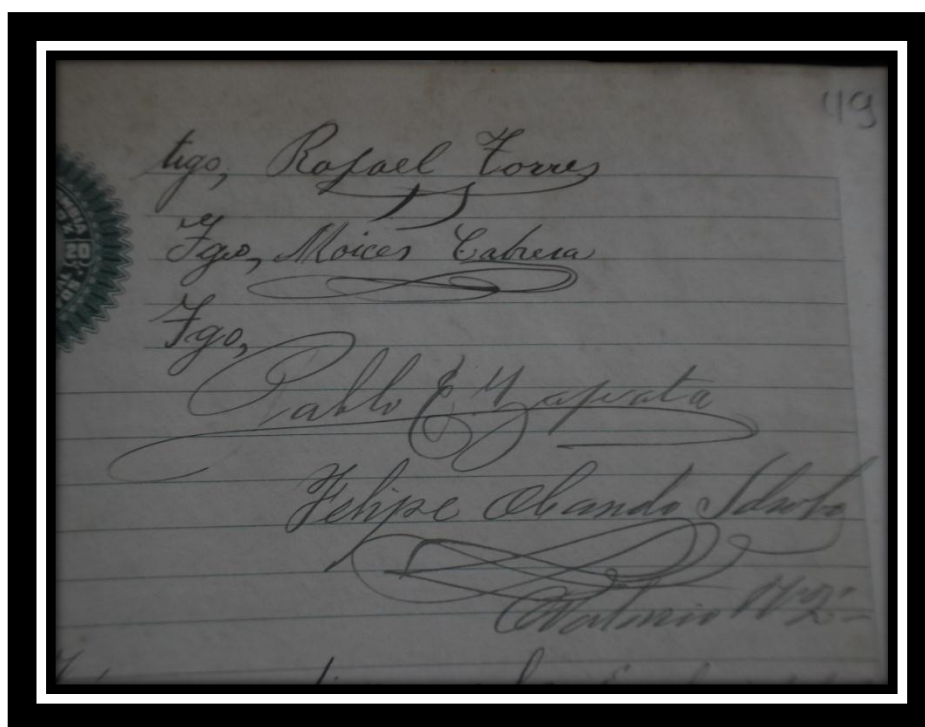 119
tigo, Rafael Torres
Tgo, Moices Cabrera
Tgo,
Pablo E. Zapata
Felipe Obando Idrobo
Antonio
20